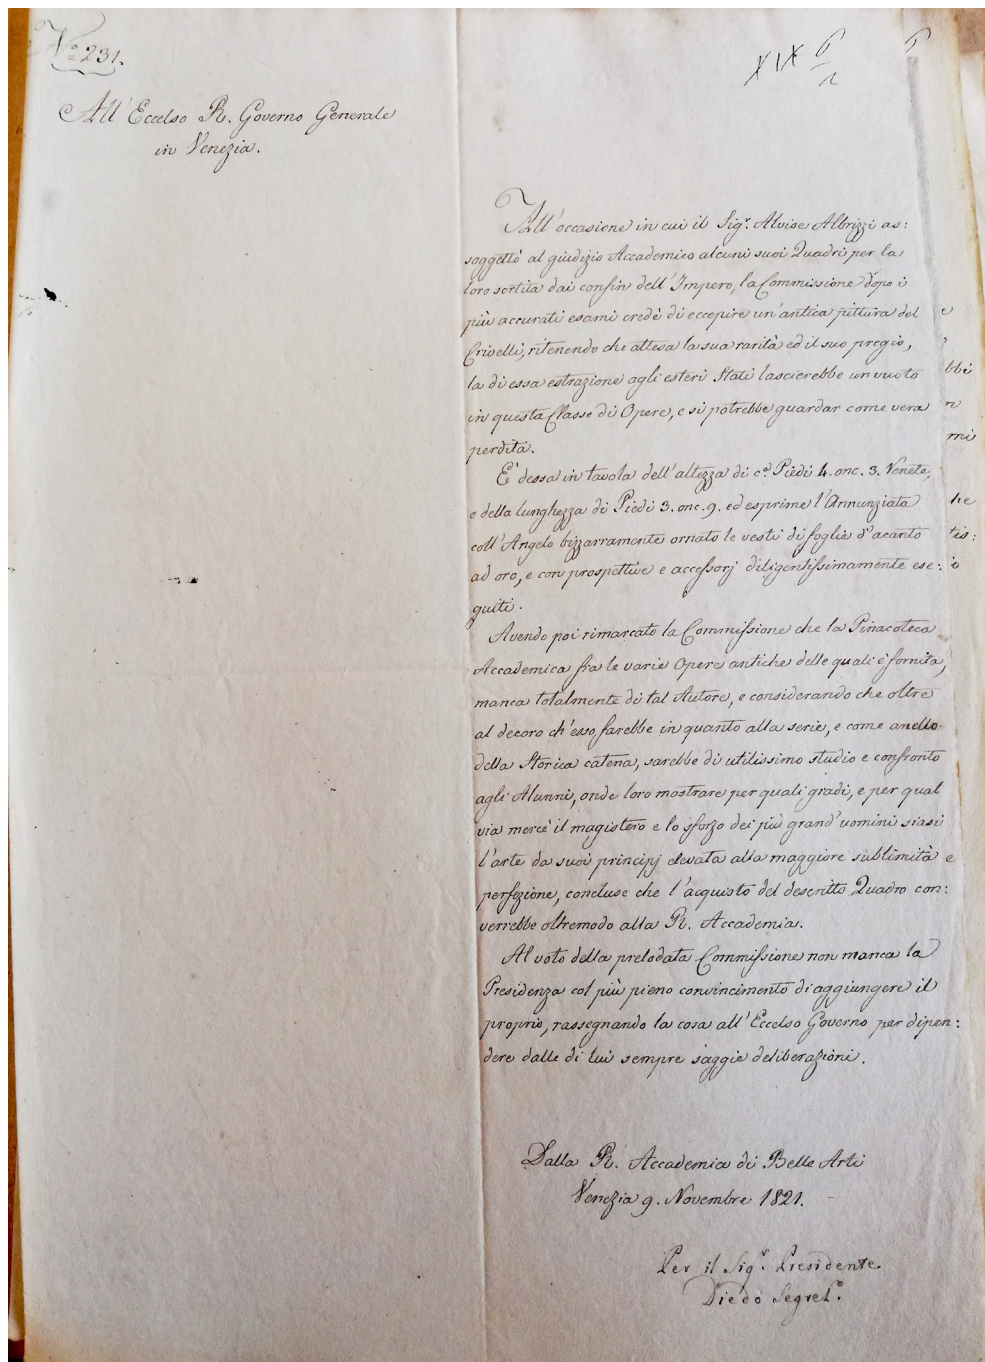 N.º 231.
XIX 6/2
6
All' Eccelso R. Governo Generale
in Venezia.
All'occasione in cui il Sig.r Alvise Albrizzi as:
soggettò al giudizio Accademico alcuni suoi Quadri per la
loro sortita dai confin dell'Impero, la Commissione dopo i
più accurati esami credè di eccepire un'antica pittura del
Crivelli, ritenendo che attesa la sua rarità ed il suo pregio,
la di essa estrazione agli esteri Stati lascierebbe un vuoto
in questa Classe di Opere, e si potrebbe guardar come vera
perdita.
E' dessa in tavola dell'altezza di c.a Piedi 4. onc. 3. Venete,
e della lunghezza di Piedi 3. onc. 9. ed esprime l'Annunziata
coll'Angelo bizzarramente ornato le vesti di foglie d'acanto
ad oro, e con prospettive e accessorj diligentissimamente ese:
guiti.
Avendo poi rimarcato la Commissione che la Pinacoteca
Accademica fra le varie Opere antiche delle quali è fornita,
manca totalmente di tal Autore, e considerando che oltre
al decoro ch'esso farebbe in quanto alla serie, e come anello
della Storica catena, sarebbe di utilissimo studio e confronto
agli Alunni, onde loro mostrare per quali gradi, e per qual
via mercè il magistero e lo sforzo dei più grand'uomini siasi
l'arte da suoi principj elevata alla maggiore sublimità e
perfezione, concluse che l'acquisto del descritto Quadro con:
verrebbe oltremodo alla R. Accademia.
Al voto della prelodata Commissione non manca la
Presidenza col più pieno convincimento di aggiungere il
proprio, rassegnando la cosa all'Eccelso Governo per dipen:
dere dalle di lui sempre saggie deliberazioni.
Dalla R. Accademia di Belle Arti
Venezia 9. Novembre 1821.
Per il Sig.r Presidente
Diedo Segret.o